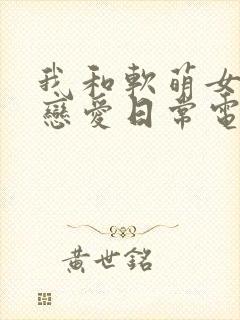 我和軟萌女
戀愛日常電
黃世銘